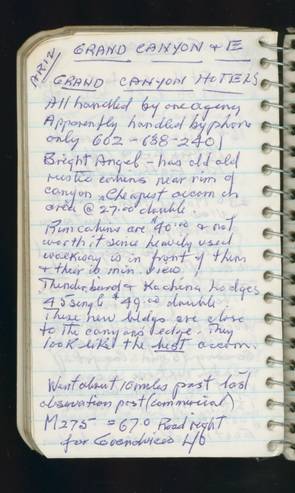 ARIZ
GRAND CANYON & E
GRAND CANYON HOTELS
All handled by one agency
Apparently handled by phone
only 602-638-2401
Bright Angel - has old old
rustic cabins near rim of
canyon. Cheapest accom in
area @ 27.00 double.
Rim cabins are $40.00 & not
worth it since heavily used
walkway is in front of them
& their is min. view.
Thunderbird & Kachina Lodges
45 single $49.00 double.
These new bldgs are close
to the canyons edge. They
look like the best accom.
Went about 10 miles past last
observation post (commercial)
M275 = 67.0 Road right
for